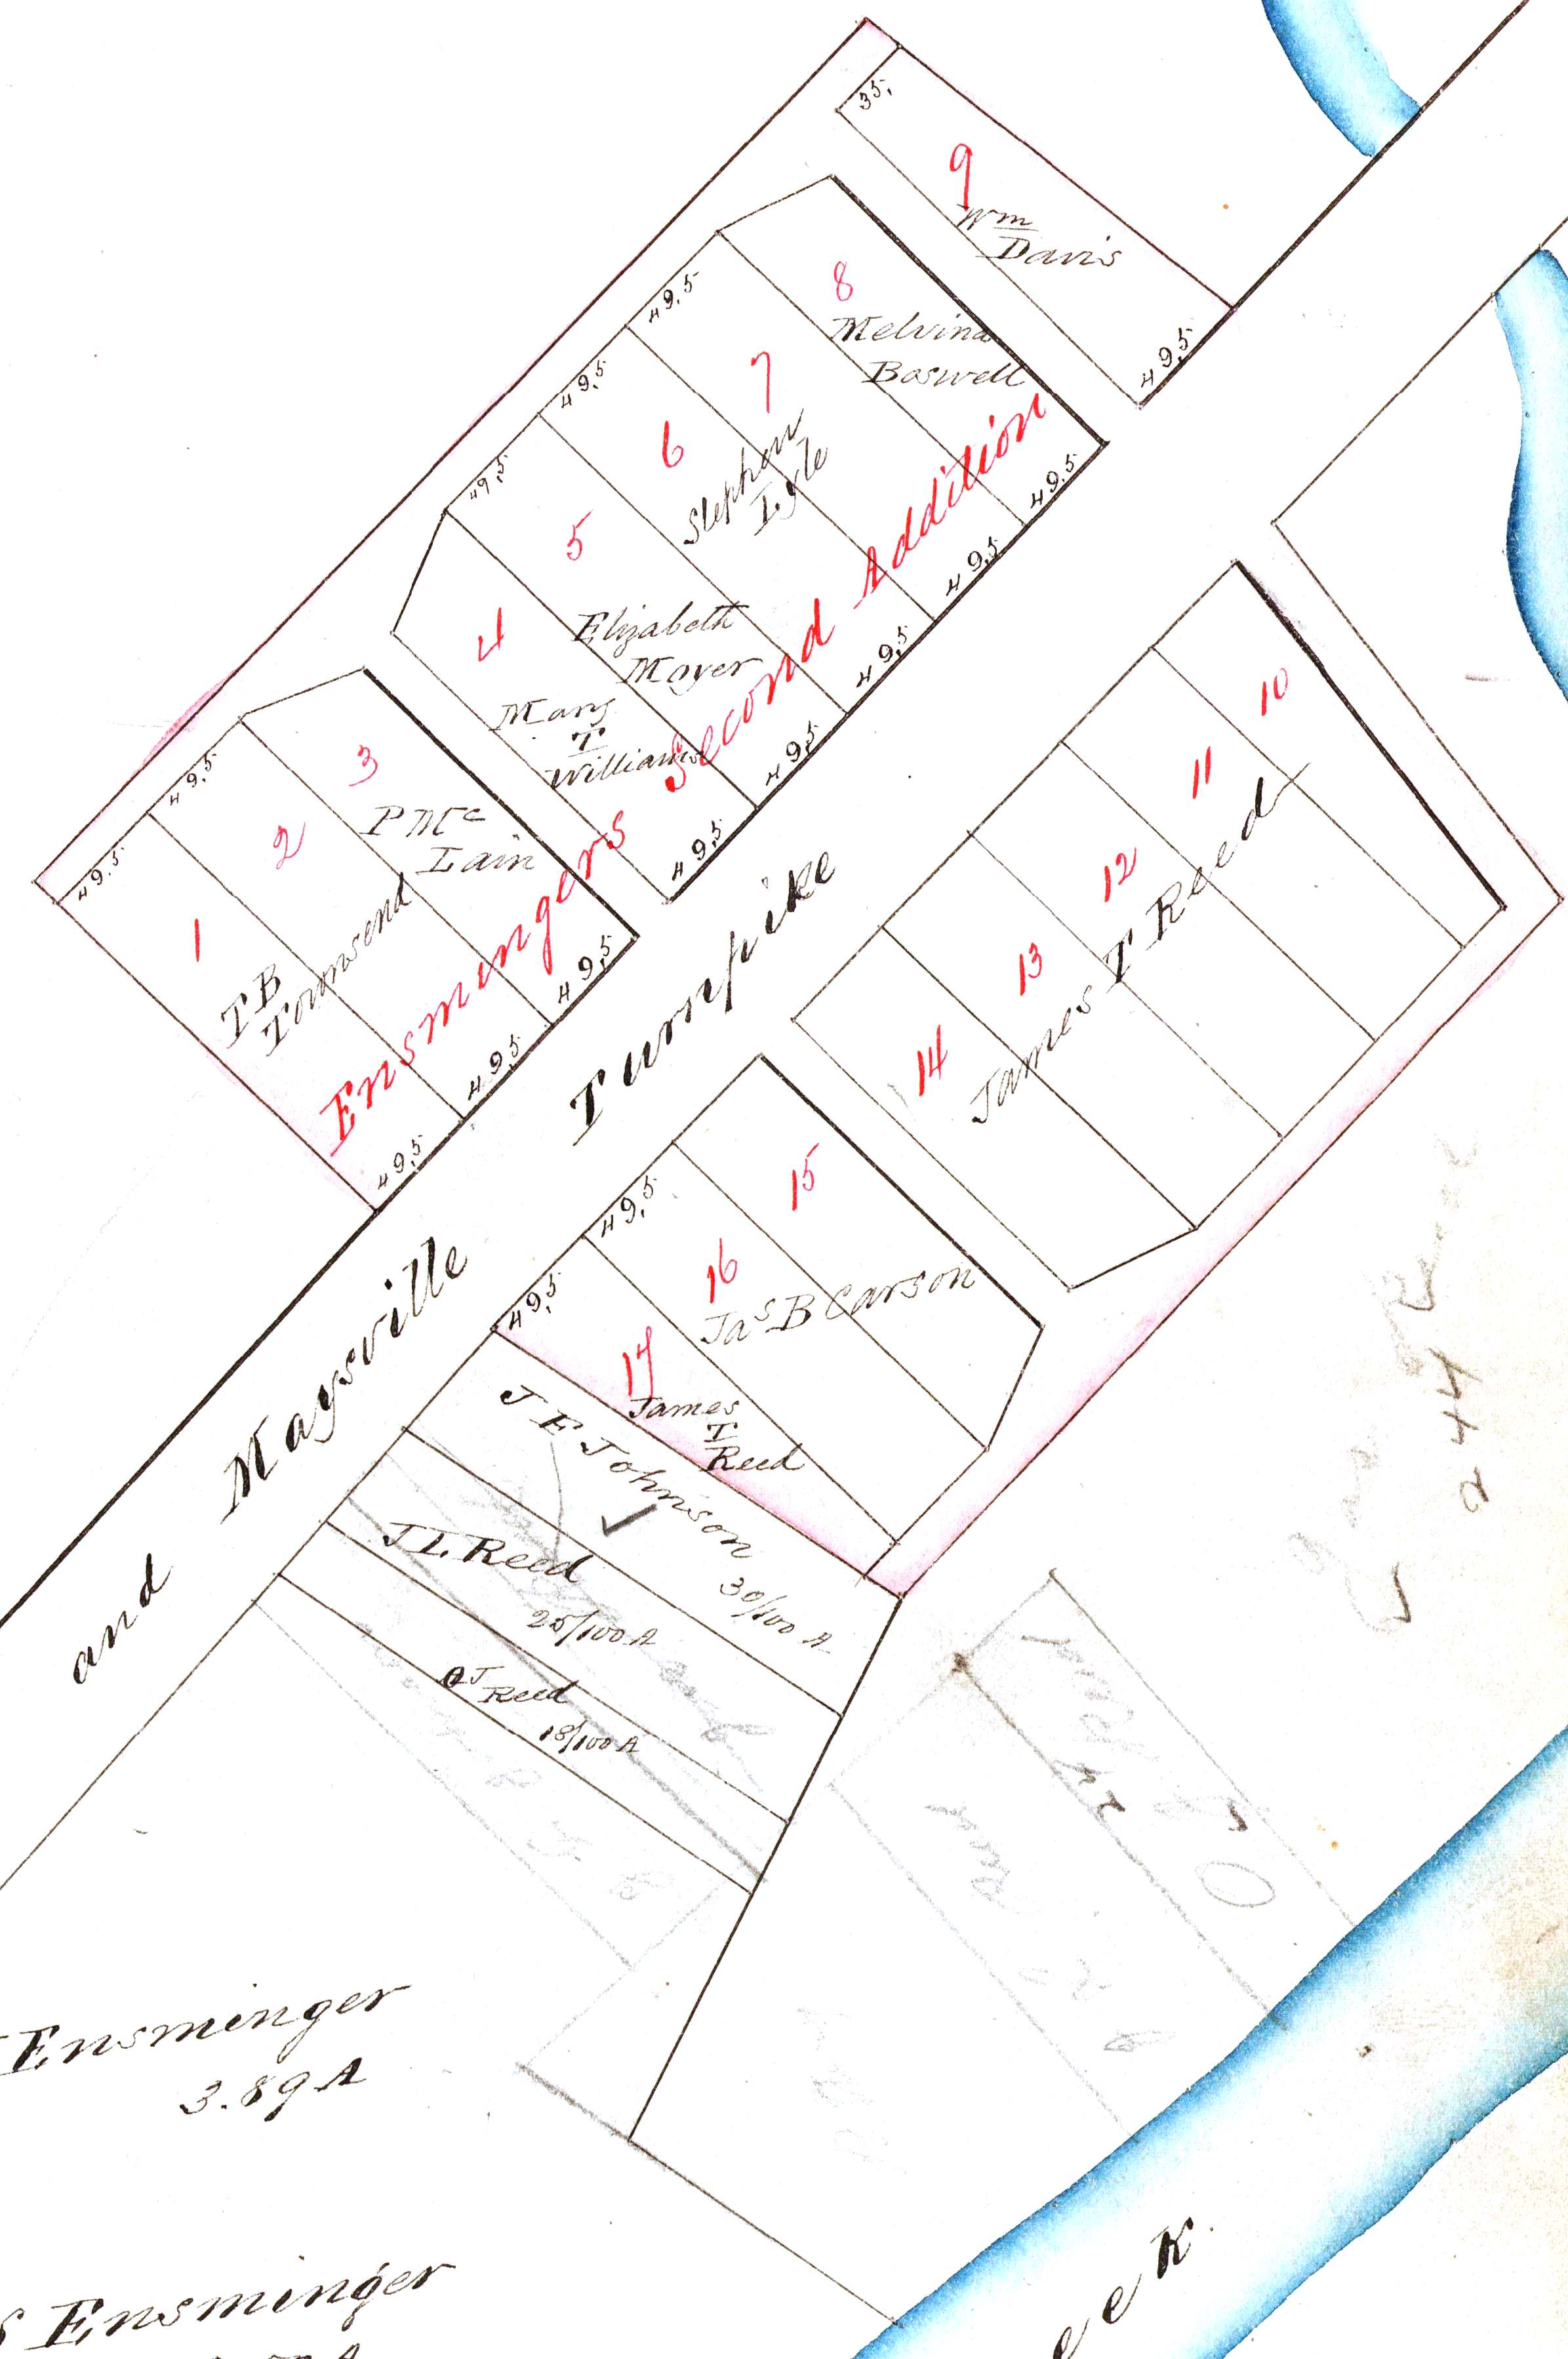 35,
9
Wm
Davis
49,5
8
Melvina
Boswell
49,5
49.5
7
49,5
6
Stephen
Lyle
49,5
49,5
5
Elizabeth
Moyer
49,5
49,5
4
Mary
T
Williams
49,5
49,5
3
P Mc
Lain
49,5
49,5
2
49,5
49.5
1
T B
Townsend
49,5
Ensmingers Second Addition
and Maysville Turnpike
10
11
12
13
14
James T Reed
15
16
Jas B Carson
49,5
17
James
T
Reed
49,5
J E Johnson
30/100 A
J L. Reed
25/100 A
A J
Reed
18/100 A
Ensminger
3.89 A
S Ensminger
A
eek